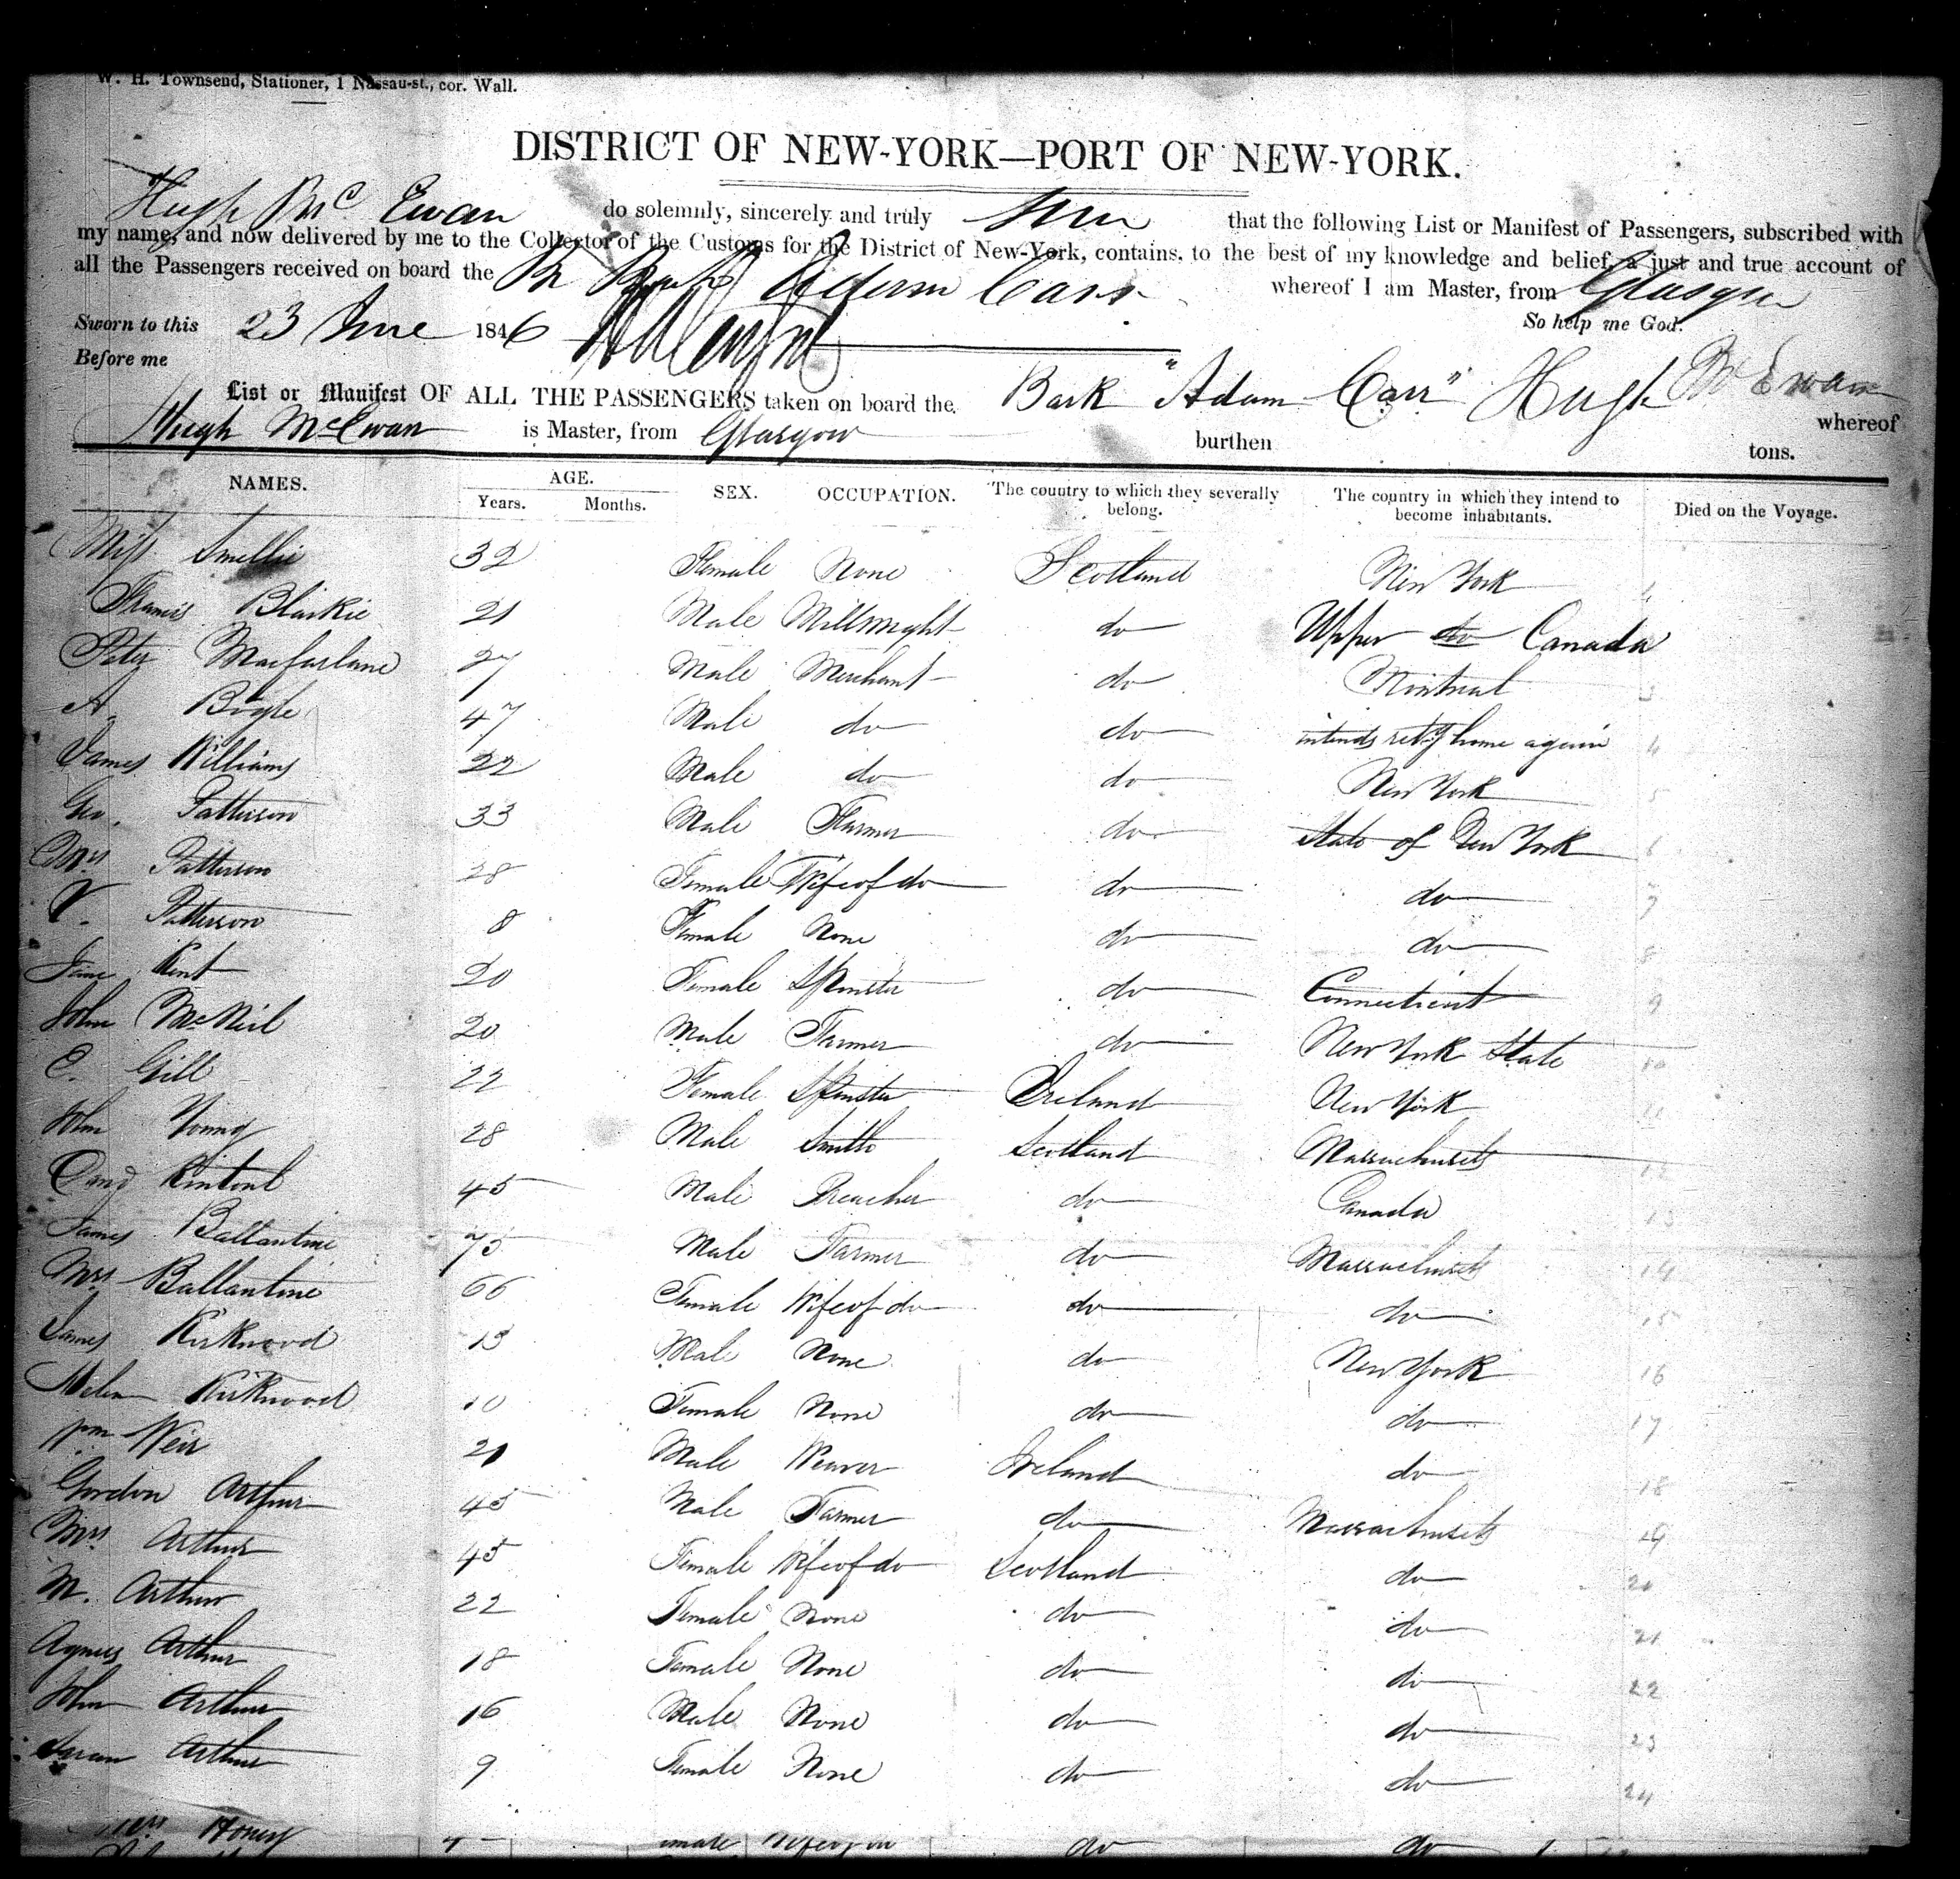 W. H. Townsend, Stationer, 1 Nassau-st., cor. Wall.
DISTRICT OF NEW-YORK—PORT OF NEW-YORK.
Hugh McEwan do solemnly, sincerely and truly that the following List or Manifest of Passengers, subscribed with
my name, and now delivered by me to the Collector of the Customs for the District of New-York, contains, to the best of my knowledge and belief, a just and true account of
all the Passengers received on board the Br Bark Adam Carr whereof I am Master, from Glasgow
Sworn to this 23 June 1846 So help me God.
Before me
List or Manifest OF ALL THE PASSENGERS taken on board the Bark "Adam Carr" Hugh McEwan whereof
Hugh McEwan is Master, from Glasgow burthen tons.
NAMES. AGE. SEX. OCCUPATION. The country to which they severally belong. The country in which they intend to become inhabitants. Died on the Voyage.
Years. Months.
Miss Smellie 32 Female None Scotland New York 1
Francis Blaikie 21 Male Millwright do Upper do Canada
Peter Macfarlane 27 Male Merchant do Montreal 3
A. Bogle 47 Male do do intends retg home again 4
James Williams 22 Male do do New York 5
Geo. Patterson 33 Male Farmer do State of New York 6
Mrs Patterson 28 Female Wife of do do do 7
V. Patterson 8 Female None do do 8
Jane Kent 20 Female Spinster do Connecticut 9
John McNeil 20 Male Farmer do New York State 10
E. Gill 22 Female Spinster Ireland New York 11
John Young 28 Male Smith Scotland Massachusets 12
Davd Rintoul 45 Male Preacher do Canada 13
James Ballantine 75 Male Farmer do Massachusets 14
Mrs Ballantine 66 Female Wife of do do do 15
James Kirkwood 13 Male None do New York 16
Helen Kirkwood 10 Female None do do 17
Wm Weir 21 Male Weaver Ireland do 18
Gordon Arthur 45 Male Farmer do Massachusets 19
Mrs Arthur 45 Female Wife of do Scotland do 20
M. Arthur 22 Female None do do 21
Agnes Arthur 18 Female None do do 22
John Arthur 16 Male None do do 23
Sarah Arthur 9 Female None do do 24
do do